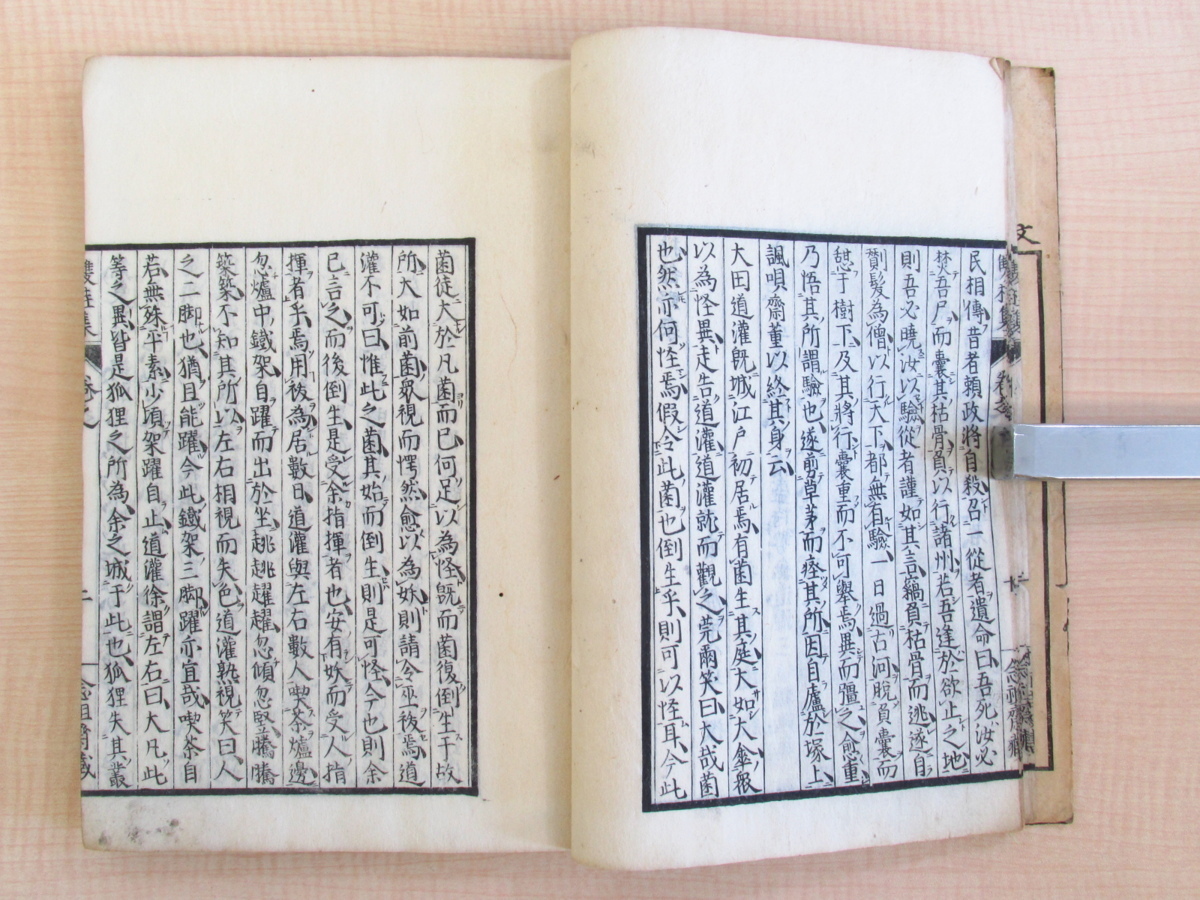 民相傳昔者賴政將自殺召一從者遺命曰吾死汝必
焚吾尸而囊其枯骨負以行諸州若吾逢於欲止之地
則吾必曉汝以驗從者謹如其言竊負枯骨而逃遂自
髮為僧以行天下郡無有驗一日過古河脫負囊而
憇于樹下及其將行囊重而不可舉焉異而彊之愈重
乃悟其所謂驗也遂剪草茅而瘞其所因自廬於塚上
諷唄齋薰以終其身云
大田道灌既城江戶初居焉有菌生其庭大如大傘眾
以為怪異走告道灌道灌就而觀之莞爾笑曰大哉菌
也然亦何怪焉假令此菌也倒生乎則可以怪耳今此
菌徒大於凡菌而已何足以為怪既而菌復倒生于故
所大如前菌眾視而愕然愈以為妖則請令巫祓焉道
灌不可曰惟此之菌其始而倒生則是可怪今也則余
已言之而後倒生是受余指揮者也安有妖而受人指
揮者乎焉用祓為居數日道灌與左右數人喫茶爐邊
忽爐中鐵架自躍而出於坐趒趒趯趯忽傾忽竪騰騰
築築不知其所以左右相視而失色道灌熟視笑曰人
之二脚也猶且能躍今此鐵架三脚躍亦宜哉喫茶自
若無殊平素少頃架躍自止道灌徐謂左右曰大凡此
等之異皆是狐狸之所為余之城于此也狐狸失其叢
雙桂集